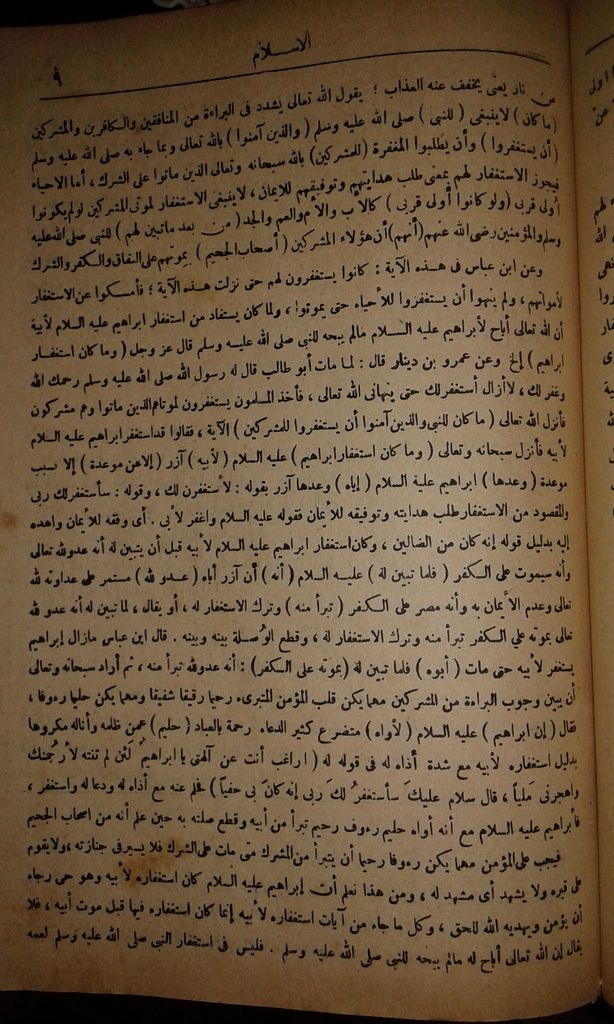 الاسلام
٩
من نار يعنى يخفف عنه العذاب ؛ يقول الله تعالى يشدد فى البراءة من المنافقين والكافرين والمشركين
( ما كان ) لاينبغى ( للنبى ) صلى الله عليه وسلم ( والذين آمنوا ) بالله تعالى وبما جاء به صلى الله عليه وسلم
( أن يستغفروا ) وأن يطلبوا المغفرة ( للمشركين ) بالله سبحانه وتعالى الذين ماتوا على الشرك ، أما الاحياء
فيجوز الاستغفار لهم بمعنى طلب هدايتهم وتوفيقهم للايمان ، لاينبغى الاستغفار لموتى المشركين لو لم يكونوا
أولى قربى ( ولو كانوا أولى قربى ) كالأب والأم والعم والجد ( من بعد ماتبين لهم ) للنبى صلى الله عليه
وسلم والمؤمنين رضى الله عنهم ( أنهم ) أن هؤلاء المشركين ( أصحاب الجحيم ) بموتهم على النفاق والكفر والشرك
وعن ابن عباس فى هذه الآية : كانوا يستغفرون لهم حتى نزلت هذه الآية ؛ فأمسكوا عن الاستغفار
لأمواتهم ، ولم ينهوا أن يستغفروا للأحياء حتى يموتوا ، ولما كان يستفاد من استغفار ابراهيم عليه السلام لأبيه
أن الله تعالى أباح لأبراهيم عليه السلام مالم يبحه للنبى صلى الله عليه وسلم قال عز وجل ( وما كان استغفار
ابراهيم ) إلخ وعن عمرو بن دينار قال : لما مات أبو طالب قال له رسول الله صلى الله عليه وسلم رحمك الله
وغفر لك ، لاأزال أستغفرلك حتى ينهانى الله تعالى ، فأخذ المسلمون يستغفرون لموتاهم الذين ماتوا وهم مشركون
فأنزل الله تعالى ( ما كان للنبى والذين آمنوا أن يستغفروا للمشركين ) الآية ، فقالوا قد استغفر ابراهيم عليه السلام
لأبيه فأنزل سبحانه وتعالى ( وما كان استغفار ابراهيم ) عليه السلام ( لأبيه ) آزر ( إلا عن موعدة ) إلا بسبب
موعدة ( وعدها ) ابراهيم علية السلام ( إياه ) وعدها آزر بقوله : لأستغفرن لك ، وقوله : سأستغفر لك ربى
والمقصود من الاستغفار طلب هدايته وتوفيقه للأيمان فقوله عليه السلام واغفر لأبى . أى وفقه للأيمان واهده
إليه بدليل قوله إنه كان من الضالين ، وكان استغفار ابراهيم عليه السلام لأبيه قبل أن يتبين له أنه عدو لله تعالى
وأنه سيموت على الكفر ( فلما تبين له ) عليه السلام ( أنه ) أن آزر أباه ( عدو لله ) مستمر على عداوته لله
تعالى وعدم الأيمان به وأنه مصر على الكفر ( تبرأ منه ) وترك الاستغفار له ، أو يقال ، لما تبين له أنه عدو لله
تعالى بموته علي الكفر تبرأ منه وترك الاستغفار له ، وقطع الوُصلة بينه وبينه . قال ابن عباس مازال إبراهيم
يستغفر لأبيه حتى مات ( أبوه ) فلما تبين له ( بموته على الكفر ) : أنه عدو لله تبرأ منه ، ثم أراد سبحانه وتعالى
أن يبين وجوب البراءة من المشركين مهما يكن قلب المؤمن المتبرىء رحيما رقيقا شفيقا ومهما يكن حليما رءوفا ،
فقال ( إن ابراهيم ) عليه السلام ( لأواه ) متضرع كثير الدعاء رحمة بالعباد ( حليم ) عمن ظلمه وأناله مكروها
بدليل استغفاره لأبيه مع شدة أذاه له فى قوله له ( اراغب أنت عن آلهتى يا ابراهيمُ لئن لم تنته لأرجُمنك
واهجرنى مَلياً ، قال سلام عليكَ سأستغفرُ لكَ ربى إنه كانَ بى حفياً ) فحلم عنه مع أذاه له ودعا له واستغفر ،
فأبراهيم عليه السلام مع أنه أواه حليم رءوف رحيم تبرأ من أبيه وقطع صلته به حين علم أنه من اصحاب الجحيم
فيجب على المؤمن مهما يكن رءوفا رحيما أن يتبرأ من المشرك متى مات على الشرك فلا يسير فى جنازته ، ولا يقوم
على قبره ولا يشهد أى مشهد له ، ومن هذا نعلم أن إبراهيم عليه السلام كان استغفاره لأبيه وهو حى رجاء
أن يؤمن ويهديه الله للحق ، وكل ما جاء من آيات استغفاره لأبيه إنما كان استغفاره فيها قبل موت أبيه ، فلا
يقال إن الله تعالى أباح له مالم يبحه للنبى صلى الله عليه وسلم . فليس فى استغفار النبى صلى الله عليه وسلم لعمه